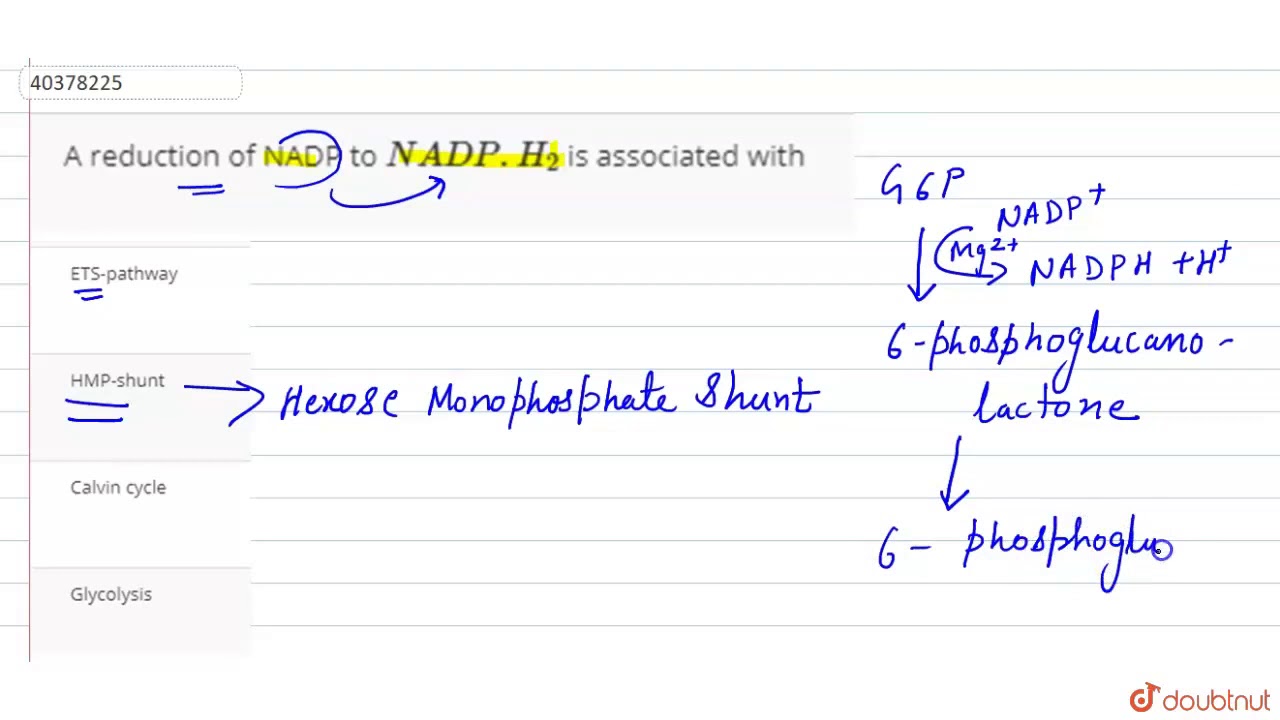 40378225
A reduction of NADP to NADP.H₂ is associated with
ETS-pathway
HMP-shunt → Hexose Monophosphate Shunt
Calvin cycle
Glycolysis
G6P
NADP⁺
Mg²⁺
NADPH + H⁺
6-phosphoglucano-
lactone
6- phosphoglu
doubtnut